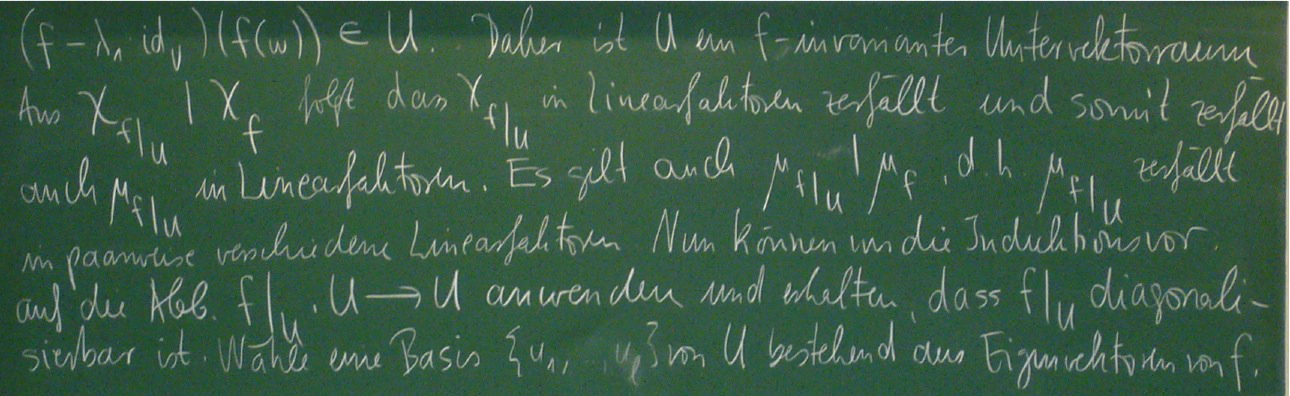 (f - λ₁ id_V)(f(w)) ∈ U. Daher ist U ein f-invarianter Untervektorraum
Aus χ_{f|_U} | χ_f folgt dass χ_{f|_U} in Linearfaktoren zerfällt und somit zerfällt
auch μ_{f|_U} in Linearfaktoren. Es gilt auch μ_{f|_U} | μ_f, d.h. μ_{f|_U} zerfällt
in paarweise verschiedene Linearfaktoren. Nun können wir die Induktionsvor.
auf die Abb. f|_U : U → U anwenden und erhalten, dass f|_U diagonali-
sierbar ist. Wähle eine Basis {u₁, ..., u_ℓ} von U bestehend aus Eigenvektoren von f.